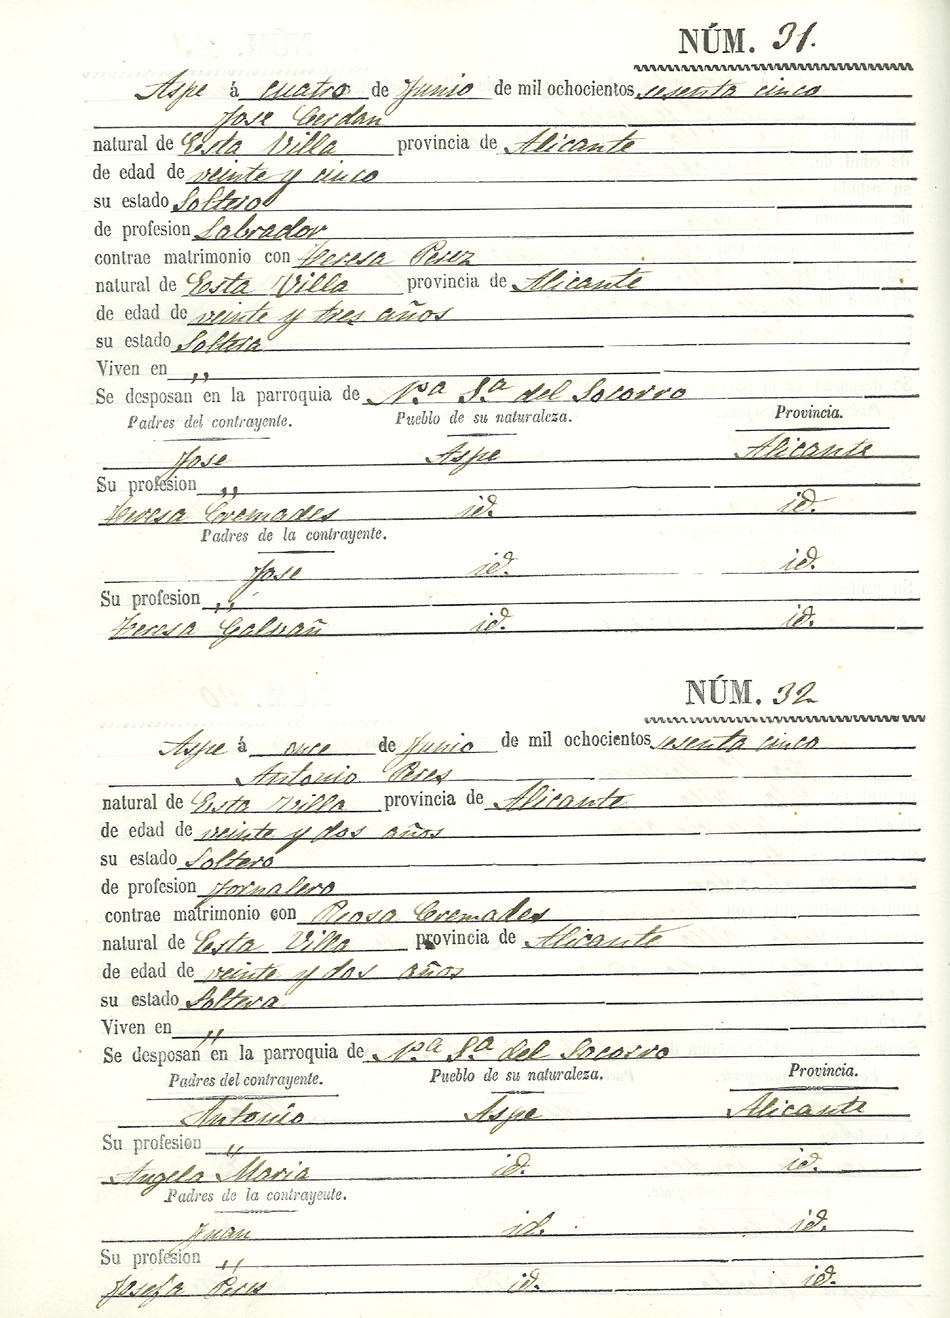 NÚM. 31.
Aspe á cuatro de Junio de mil ochocientos sesenta cinco
Jose Cerdan
natural de Esta Villa provincia de Alicante
de edad de veinte y cinco
su estado Soltero
de profesion Labrador
contrae matrimonio con Teresa Perez
natural de Esta Villa provincia de Alicante
de edad de veinte y tres años
su estado Soltera
Viven en „
Se desposan en la parroquia de Nª Sª del Socorro
Padres del contrayente. Pueblo de su naturaleza. Provincia.
Jose Aspe Alicante
Su profesion „
Teresa Cremades id. id.
Padres de la contrayente.
Jose id. id.
Su profesion „
Teresa Galvañ id. id.
NÚM. 32
Aspe á once de Junio de mil ochocientos sesenta cinco
Antonio Peres
natural de Esta Villa provincia de Alicante
de edad de veinte y dos años
su estado Soltero
de profesion Jornalero
contrae matrimonio con Rosa Cremades
natural de Esta Villa provincia de Alicante
de edad de veinte y dos años
su estado Soltera
Viven en „
Se desposan en la parroquia de Nª Sª del Socorro
Padres del contrayente. Pueblo de su naturaleza. Provincia.
Antonio Aspe Alicante
Su profesion „
Angela Maria id. id.
Padres de la contrayente.
Juan id. id.
Su profesion „
Josefa Peres id. id.